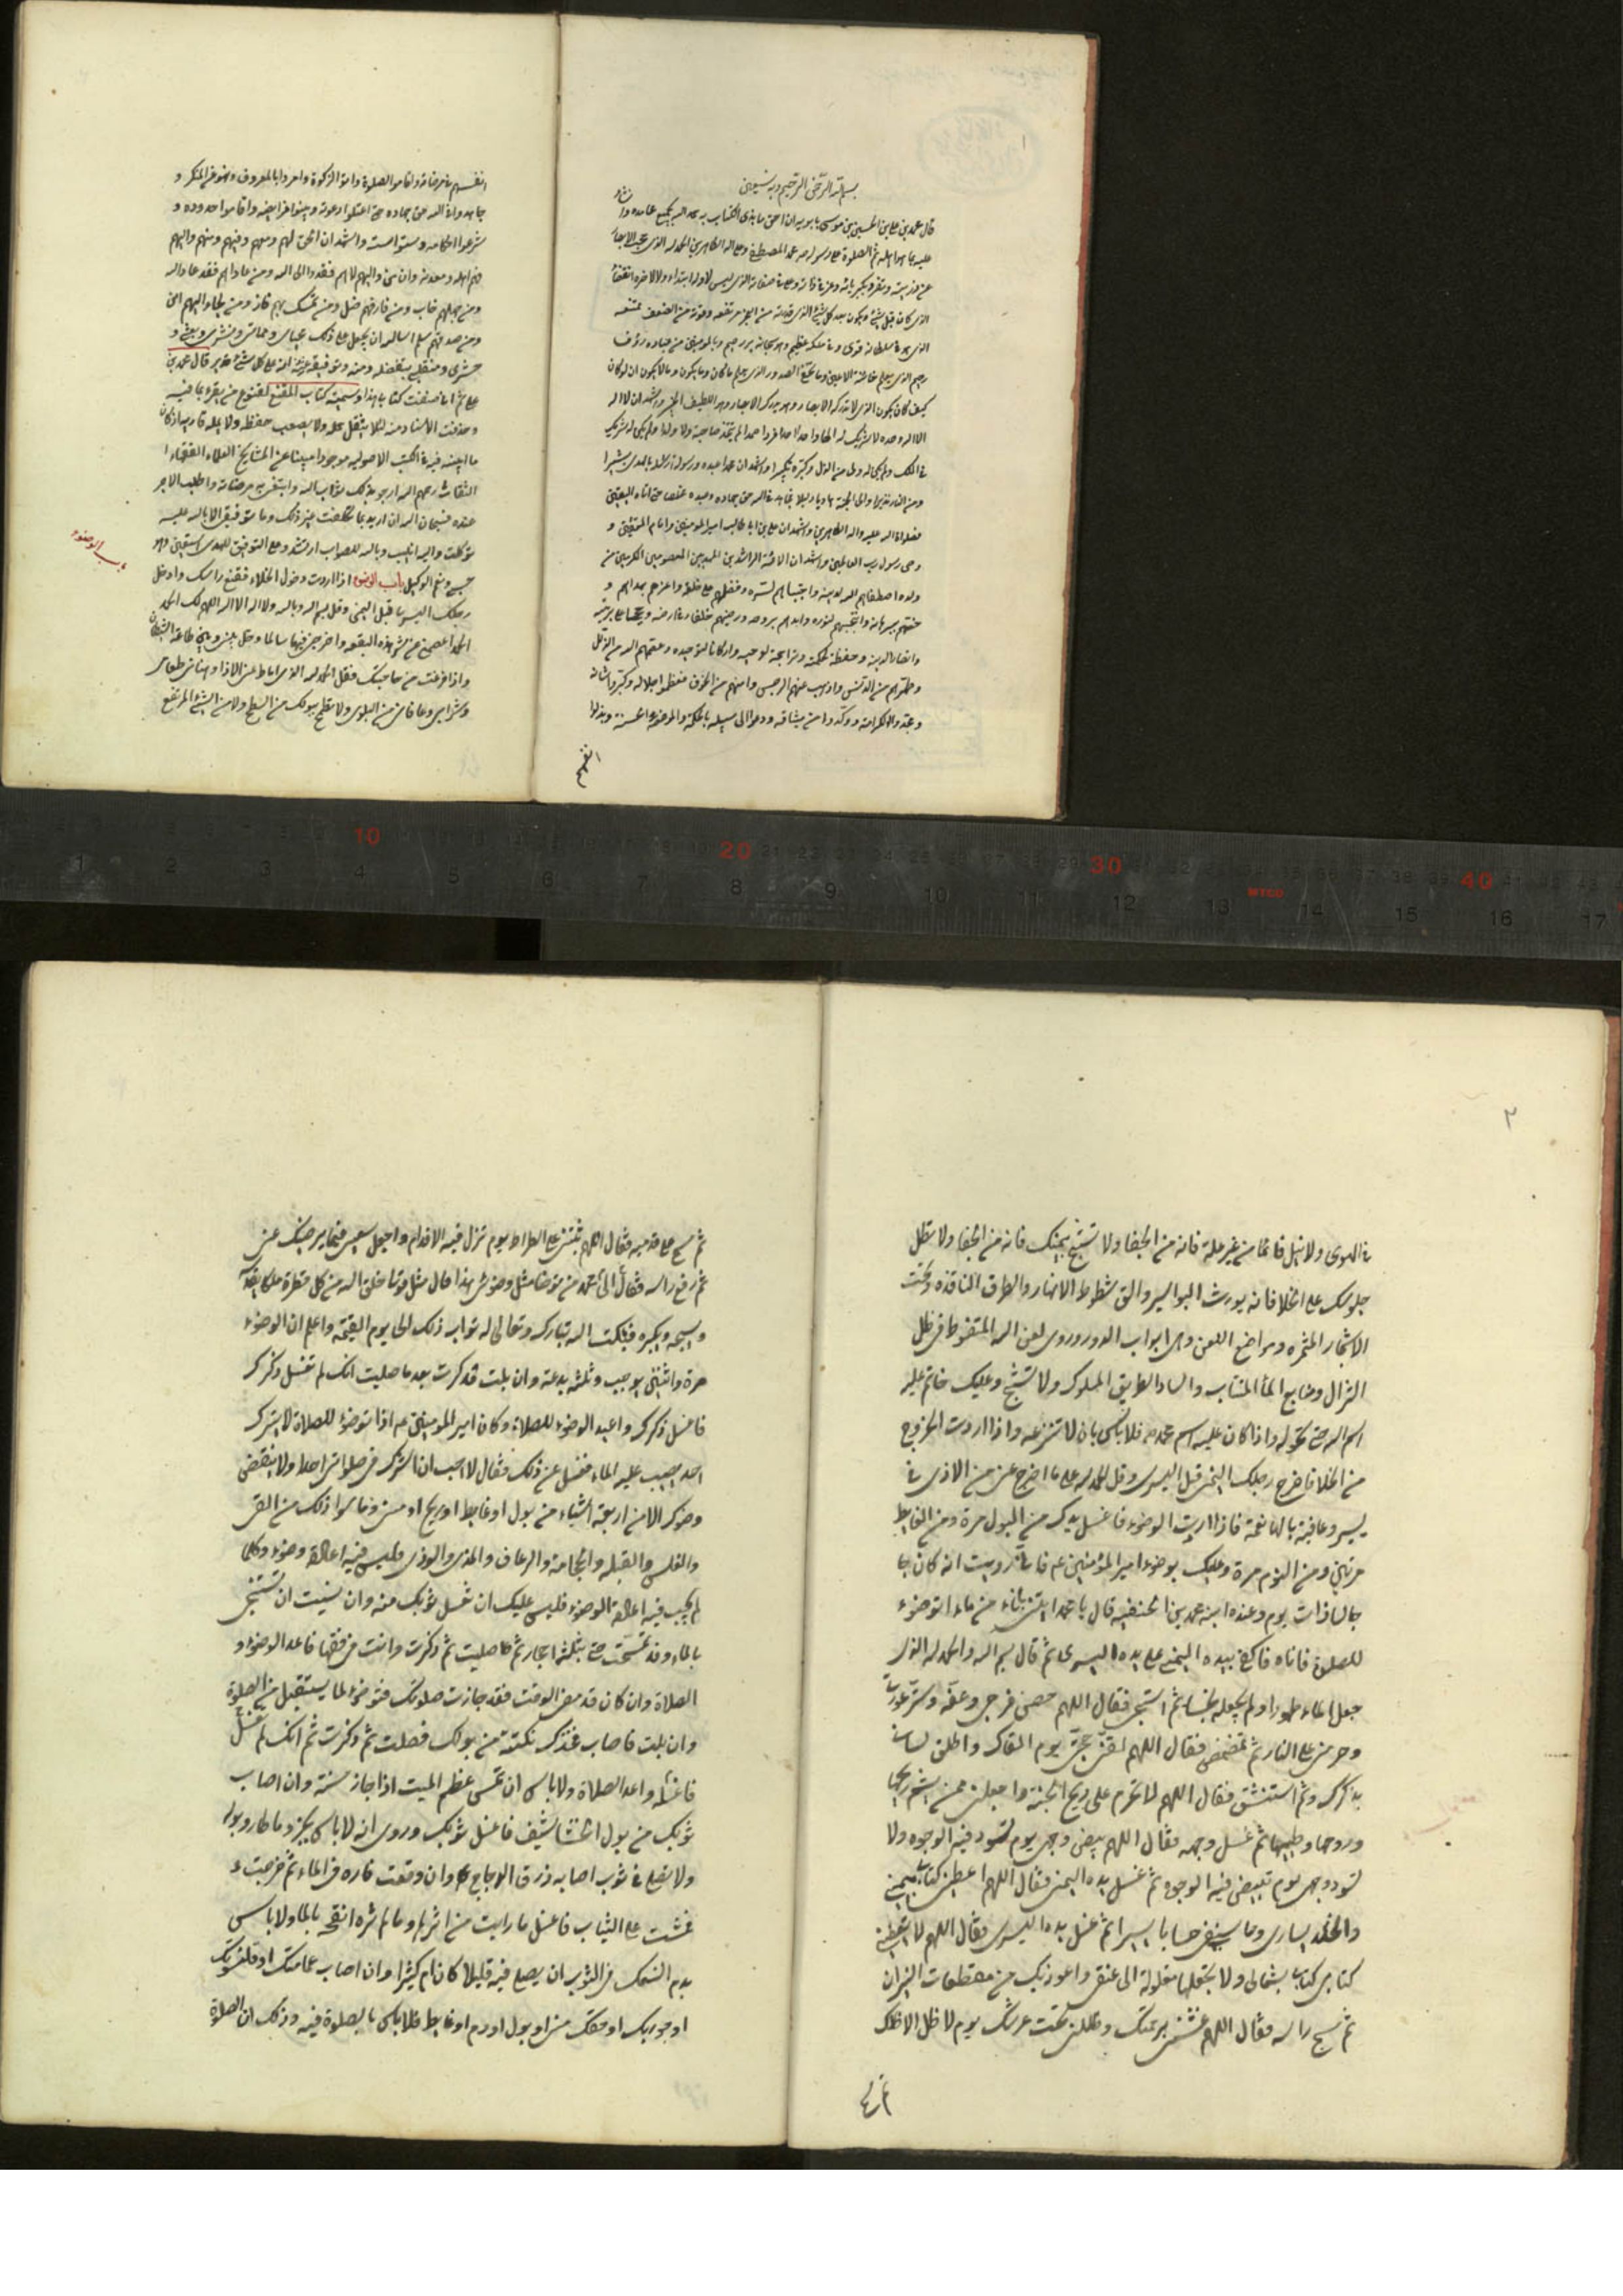 بسم الله الرحمن الرحيم وبه نستعين
قال محمد بن علي بن الحسين بن موسى بابويه ان احق ما بدى الكتاب به حمد الله بجميع محامده و
عليه بما هو اهله ثم الصلوة على رسوله محمد المصطفى وعلى اله الطاهرين الحمد لله الذي
الذي كان قبل كل شئ ويكون بعد كل شئ الذي
الذي هو في سلطانه قوى وفي ملكه عظيم وهو سبحانه بر رحيم وبالمومنين من عباده رؤف
رحيم الذي يعلم خائنة الاعين وما تخفى الصدور الذي يعلم ما كان وما يكون وما لا يكون ان لو كان
كيف كان يكون الذي لا تدركه الابصار وهو يدرك الابصار وهو اللطيف الخبير واشهد ان لا اله
الا الله وحده لا شريك له الها واحدا احدا فردا صمدا لم يتخذ صاحبة ولا ولدا ولم يكن له شريك
في الملك ولم يكن له ولى من الذل وكبره تكبيرا واشهد ان محمدا عبده ورسوله ارسله بالهدى بشيرا
ومن النار نذيرا والى الجنة هاديا ودليلا فجاهد في الله حق جهاده وعبده مخلصا حتى اتاه اليقين
فصلوات الله عليه واله الطاهرين واشهد ان علي بن ابي طالب امير المومنين وامام المتقين و
وصى رسول رب العالمين واشهد ان الائمة الراشدين المهديين المعصومين المكرمين من
ولده اصطفاهم الله لدينه واجتباهم لسره وفضلهم على خلقه واعزهم بهداهم و
خصهم ببرهانه وانتجبهم لنوره وايدهم بروحه ورضيهم خلفاء في ارضه وحججا على بريته
وانصارا لدينه وحفظة لحكمته وتراجمة لوحيه واركانا لتوحيده وعصمهم الله من الزلل
وطهرهم من الدنس واذهب عنهم الرجس وامنهم من الخوف فعظموا جلاله وكبروا شانه
ومجدوا كرامته ووكدوا من ميثاقه ودعوا الى سبيله بالحكمة والموعظة الحسنة وبذلوا
انفسهم في مرضاته واقاموا الصلوة واتوا الزكوة وامروا بالمعروف ونهوا عن المنكر و
جاهدوا في الله حق جهاده حتى اعلنوا دعوته وبينوا فرايضه واقاموا حدوده و
شرعوا احكامه وسنوا سننه واشهد ان الحق لهم ومعهم وفيهم ومنهم واليهم
وهم اهله ومعدنه وان من واليهم فقد والى الله ومن عاداهم فقد عادا الله
ومن جهلهم خاب ومن فارقهم ضل ومن تمسك بهم فاز ومن لجا اليهم امن
ومن صدقهم سلم اسال الله ان يجعل على ذلك محياى ومماتى ومنشرى وبعثى و
حشرى ومنقلبى بتفضله ومنه وتوفيقه وعزته انه على كل شئ قدير قال محمد بن
على ثم انى صنفت كتابى هذا وسميته كتاب المقنع لقنوع من يقرؤه بما فيه
وحذفت الاسناد منه لئلا يثقل حمله ولا يصعب حفظه ولا يمله قاريه اذ كان
ما ابينه فيه في الكتب الاصوليه موجودا مبينا عن المشايخ العلماء الفقهاء
الثقات رحمهم الله ارجو بذلك ثواب الله وابتغى به مرضاته واطلب الاجر
عنده فسبحان الله ان اريد بما تكلفت غير ذلك وما توفيقى الا بالله عليه
توكلت واليه انيب وبالله للصواب ارشد وعلى التوفيق للهدى استعين وهو
حسبى ونعم الوكيل باب الوضوء اذا اردت دخول الخلاء فقنع راسك وادخل
رجلك اليسرى قبل اليمنى وقل بسم الله وبالله ولا اله الا الله اللهم لك الحمد
الحمد اعصمنى من شر هذه البقعه واخرجنى منها سالما وحل بينى وبين طاعة الشيطان
واذا فرغت من حاجتك فقل الحمد لله الذي اماط عنى الاذا وهنانى طعامى
وشرابى وعافانى من البلوى ولا تطمح ببولك من السطح ولا من الشئ المرتفع
باب الوضوء
٢
في الهوى ولا تبل قائما من غير علة فانه من الجفا ولا تستنج بيمينك فانه من الجفا ولا تطل
جلوسك على الخلا فانه يورث البواسير واتق شطوط الانهار والطرق النافذه وتحت
الاشجار المثمره ومواضع اللعن وهى ابواب الدور وروى لعن الله المتغوط في ظل
النزال ومانع الماء المنتاب والساد الطريق المسلوك ولا تستنج وعليك خاتم عليه
اسم الله حتى تحوله واذا كان عليه اسم محمد فلا باس بان لا تنزعه واذا اردت الخروج
من الخلا فاخرج رجلك اليمنى قبل اليسرى وقل الحمد لله على ما اخرج عنى من الاذى في
يسر وعافية يا لها نعمة فاذا اردت الوضوء فاغسل يدك من البول مرة ومن الغايط
مرتين ومن النوم مرة وعليك بوضوء امير المؤمنين عم فانى رويت انه كان جا
جالسا ذات يوم وعنده ابنه محمد بن الحنفيه قال يا محمد ايتنى باناء من ماء اتوضوء
للصلوة فاتاه فاكفى بيده اليمنى على يده اليسرى ثم قال بسم الله والحمد لله الذي
جعل الماء طهورا ولم يجعله نجسا ثم استنجى فقال اللهم حصن فرجى وعفه وستر عورتى
وحرمنى على النار ثم تمضمض فقال اللهم لقنى حجتى يوم القاك واطلق لسانى
بذكرك ثم استنشق فقال اللهم لا تحرم على ريح الجنة واجعلنى ممن يشم ريحها
وروحها وطيبها ثم غسل وجهه فقال اللهم بيض وجهى يوم تسود فيه الوجوه ولا
تسود وجهى يوم تبيض فيه الوجوه ثم غسل يده اليمنى فقال اللهم اعطنى كتابى بيمينى
والخلد بيسارى وحاسبنى حسابا يسيرا ثم غسل يده اليسرى فقال اللهم لا تعطنى
كتابى بشمالى ولا تجعلها مغلولة الى عنقى واعوذ بك من مقطعات النيران
ثم مسح راسه فقال اللهم غشنى برحمتك وظللنى تحت عرشك يوم لا ظل الا ظلك
ثم مسح على قدميه فقال اللهم ثبتنى على الصراط يوم تزل فيه الاقدام واجعل سعيى فيما يرضيك عنى
ثم رفع راسه فقال الى محمد من توضا مثل وضوئى هذا وقال مثل قولى خلق الله من كل قطرة ملكا يقدسه
ويسبحه ويكبره فيكتب الله تبارك وتعالى له ثواب ذلك الى يوم القيمة واعلم ان الوضوء
مرة واثنتين يوجب وثلثه بدعة وان بلت فذكرت بعد ما صليت انك لم تغسل ذكرك
فاغسل ذكرك واعيد الوضوء للصلاة وكان امير المومنين عم اذا توضوء للصلاة لا يترك
احد يصيب عليه الماء فسئل عن ذلك فقال لا احب ان اشرك في صلواتى احدا ولا ينقض
وضوك الا من اربعة اشياء من بول او غايط او ريح او منى وما سوا ذلك من القى
والقلس والقبله والحجامة والرعاف والمذى والوذى فليس فيه اعادة وضوء وكلما
لم يجب فيه اعادة الوضوء فليس عليك ان تغسل ثوبك منه وان نسيت ان تستنجى
بالماء وقد تمسحت حتى بثلثة احجار ثم صليت ثم ذكرت وانت في وقتها فاعد الوضوء و
الصلاة وان كان قد مضى الوقت فقد جازت صلوتك فتوضوء لما يستقبل من الصلوة
وان بلت فاصاب فخذك نكتة من بولك فصلت ثم ذكرت ثم انك لم تغسل
فاغسله واعد الصلاة ولا باس ان تمس عظم الميت اذا جاز سنة وان اصاب
ثوبك من بول الخشاشيف فاغسل ثوبك وروى انه لا باس بخرء ما طار وبوله
ولا تصلى في ثوب اصابه ذرق الدجاج وان وقعت فاره في الماء ثم خرجت
فمشت على الثياب فاغسل ما رايت من اثرها وما لم تره انضحه بالماء ولا باس
بدم السمك في الثوب ان يصلى فيه قليلا كان ام كثيرا وان اصاب عمامتك او قلنسوتك
او جوربك او خفك منى او بول او دم او غايط فلا باس بالصلوة فيه وذلك ان الصلوة